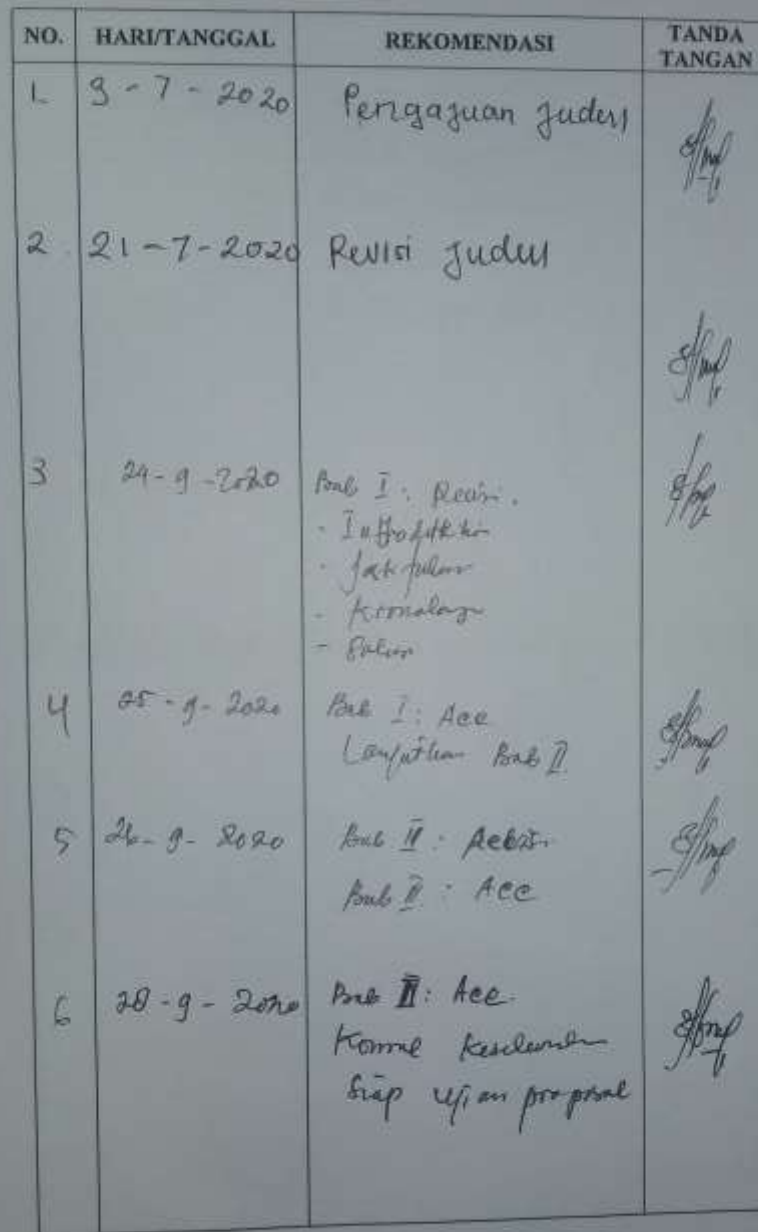 NO. HARI/TANGGAL REKOMENDASI TANDA TANGAN
1. 3-7-2020 Pengajuan Judul
2. 21-7-2020 Revisi Judul
3 24-9-2020 Bab I: Revisi.
- Kronologi
4 25-9-2020 Bab I: Acc
Lanjutkan Bab II
5 26-9-2020 Bab II: Revisi
Bab II: Acc
6 28-9-2020 Bab III: Acc.
Siap ujian proposal